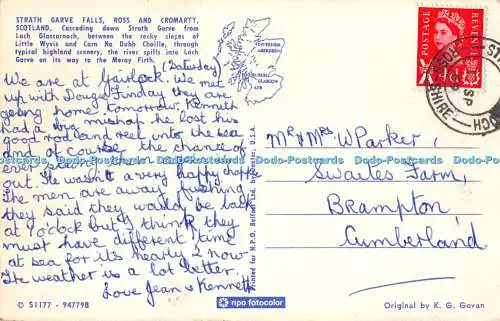 STRATH GARVE FALLS, ROSS AND CROMARTY,
SCOTLAND, Cascading down Strath Garve from
Loch Glascarnoch, between the rocky slopes of
Little Wyvis and Carn Na Dubh Choille, through
typical highland scenery, the river spills into Loch
Garve on its way to the Moray Firth.
(Saturday)
We are at Gairlock. We met
up with Dougy Finday they are
going home tomorrow. Kenneth
had a big mishap he lost his
good rod and reel into the sea
and of course the chance of
ever
out. He wasn't a very happy chappy
The men are away fishing
they said they would be back
at 9 o'clock but I think they
must have different time
at sea for its nearly 2 now
The weather is a lot better.
Love Jean & Kenneth
INVERNESS
ABERDEEN
EDINBURGH
GLASGOW
AYR
Printed for N.P.O. Belfast Ltd. U.S.A.
POSTAGE
REVENUE
ROSS-SHIRE
SP
Mr & Mrs W Parker
Swaites Farm,
Brampton,
Cumberland
© S1177 - 94779B
npo fotocolor
Original by K. G. Govan
Dodo-Postcards Dodo-Postcards Dodo-Postcards Dodo-Postcards Dodo-Postcards